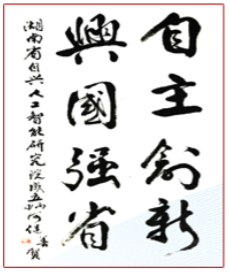 自主創新
興國强省
湖南省自兴人工智能研究院成立
何继善贺